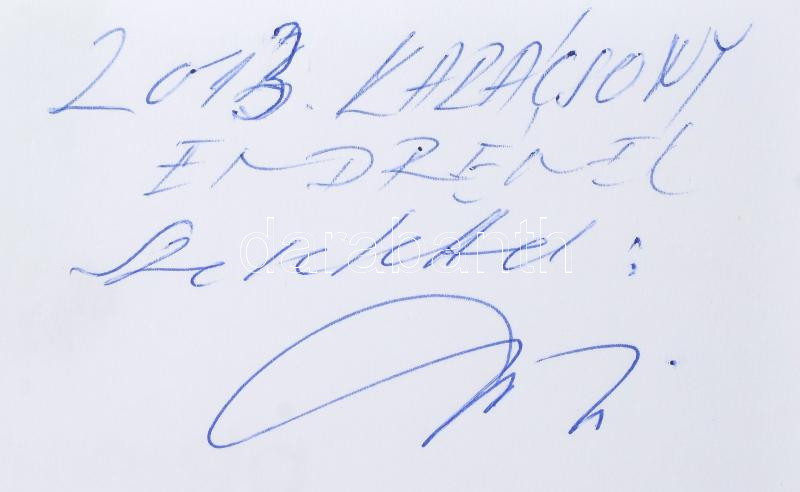 2013. KARÁCSONY
ENDRÉNEK
Szeretettel:
darabanth